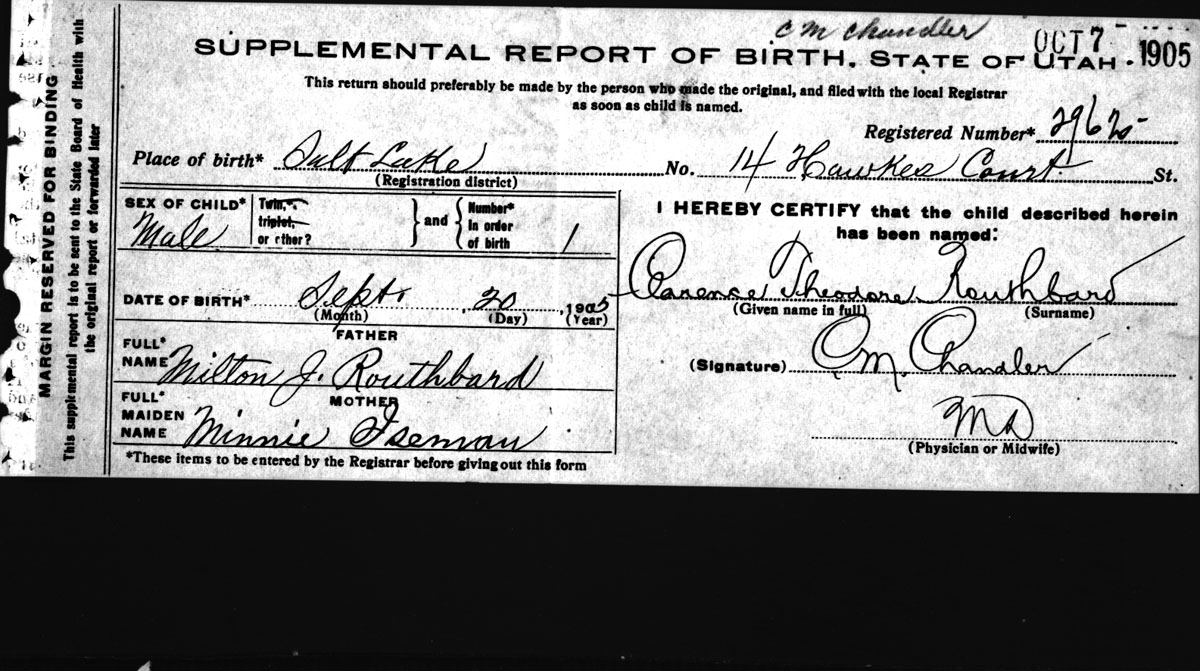 C M Chandler
SUPPLEMENTAL REPORT OF BIRTH. STATE OF UTAH. OCT 7 1905
This return should preferably be made by the person who made the original, and filed with the local Registrar
as soon as child is named.
Registered Number*
Place of birth* Salt Lake No. 14 Hawkes Court St.
(Registration district)
SEX OF CHILD* Male
Twin,
triplet,
or other?
and
Number*
in order
of birth 1
DATE OF BIRTH* Sept. 20, 1905
(Month) (Day) (Year)
FATHER
FULL*
NAME Milton J. Routhbard
MOTHER
FULL*
MAIDEN
NAME Minnie Iseman
*These items to be entered by the Registrar before giving out this form
I HEREBY CERTIFY that the child described herein
has been named:
Clarence Theodore Routhbard
(Given name in full) (Surname)
(Signature) C. M. Chandler
MD
(Physician or Midwife)
MARGIN RESERVED FOR BINDING
This supplemental report is to be sent to the State Board of Health with
the original report or forwarded later